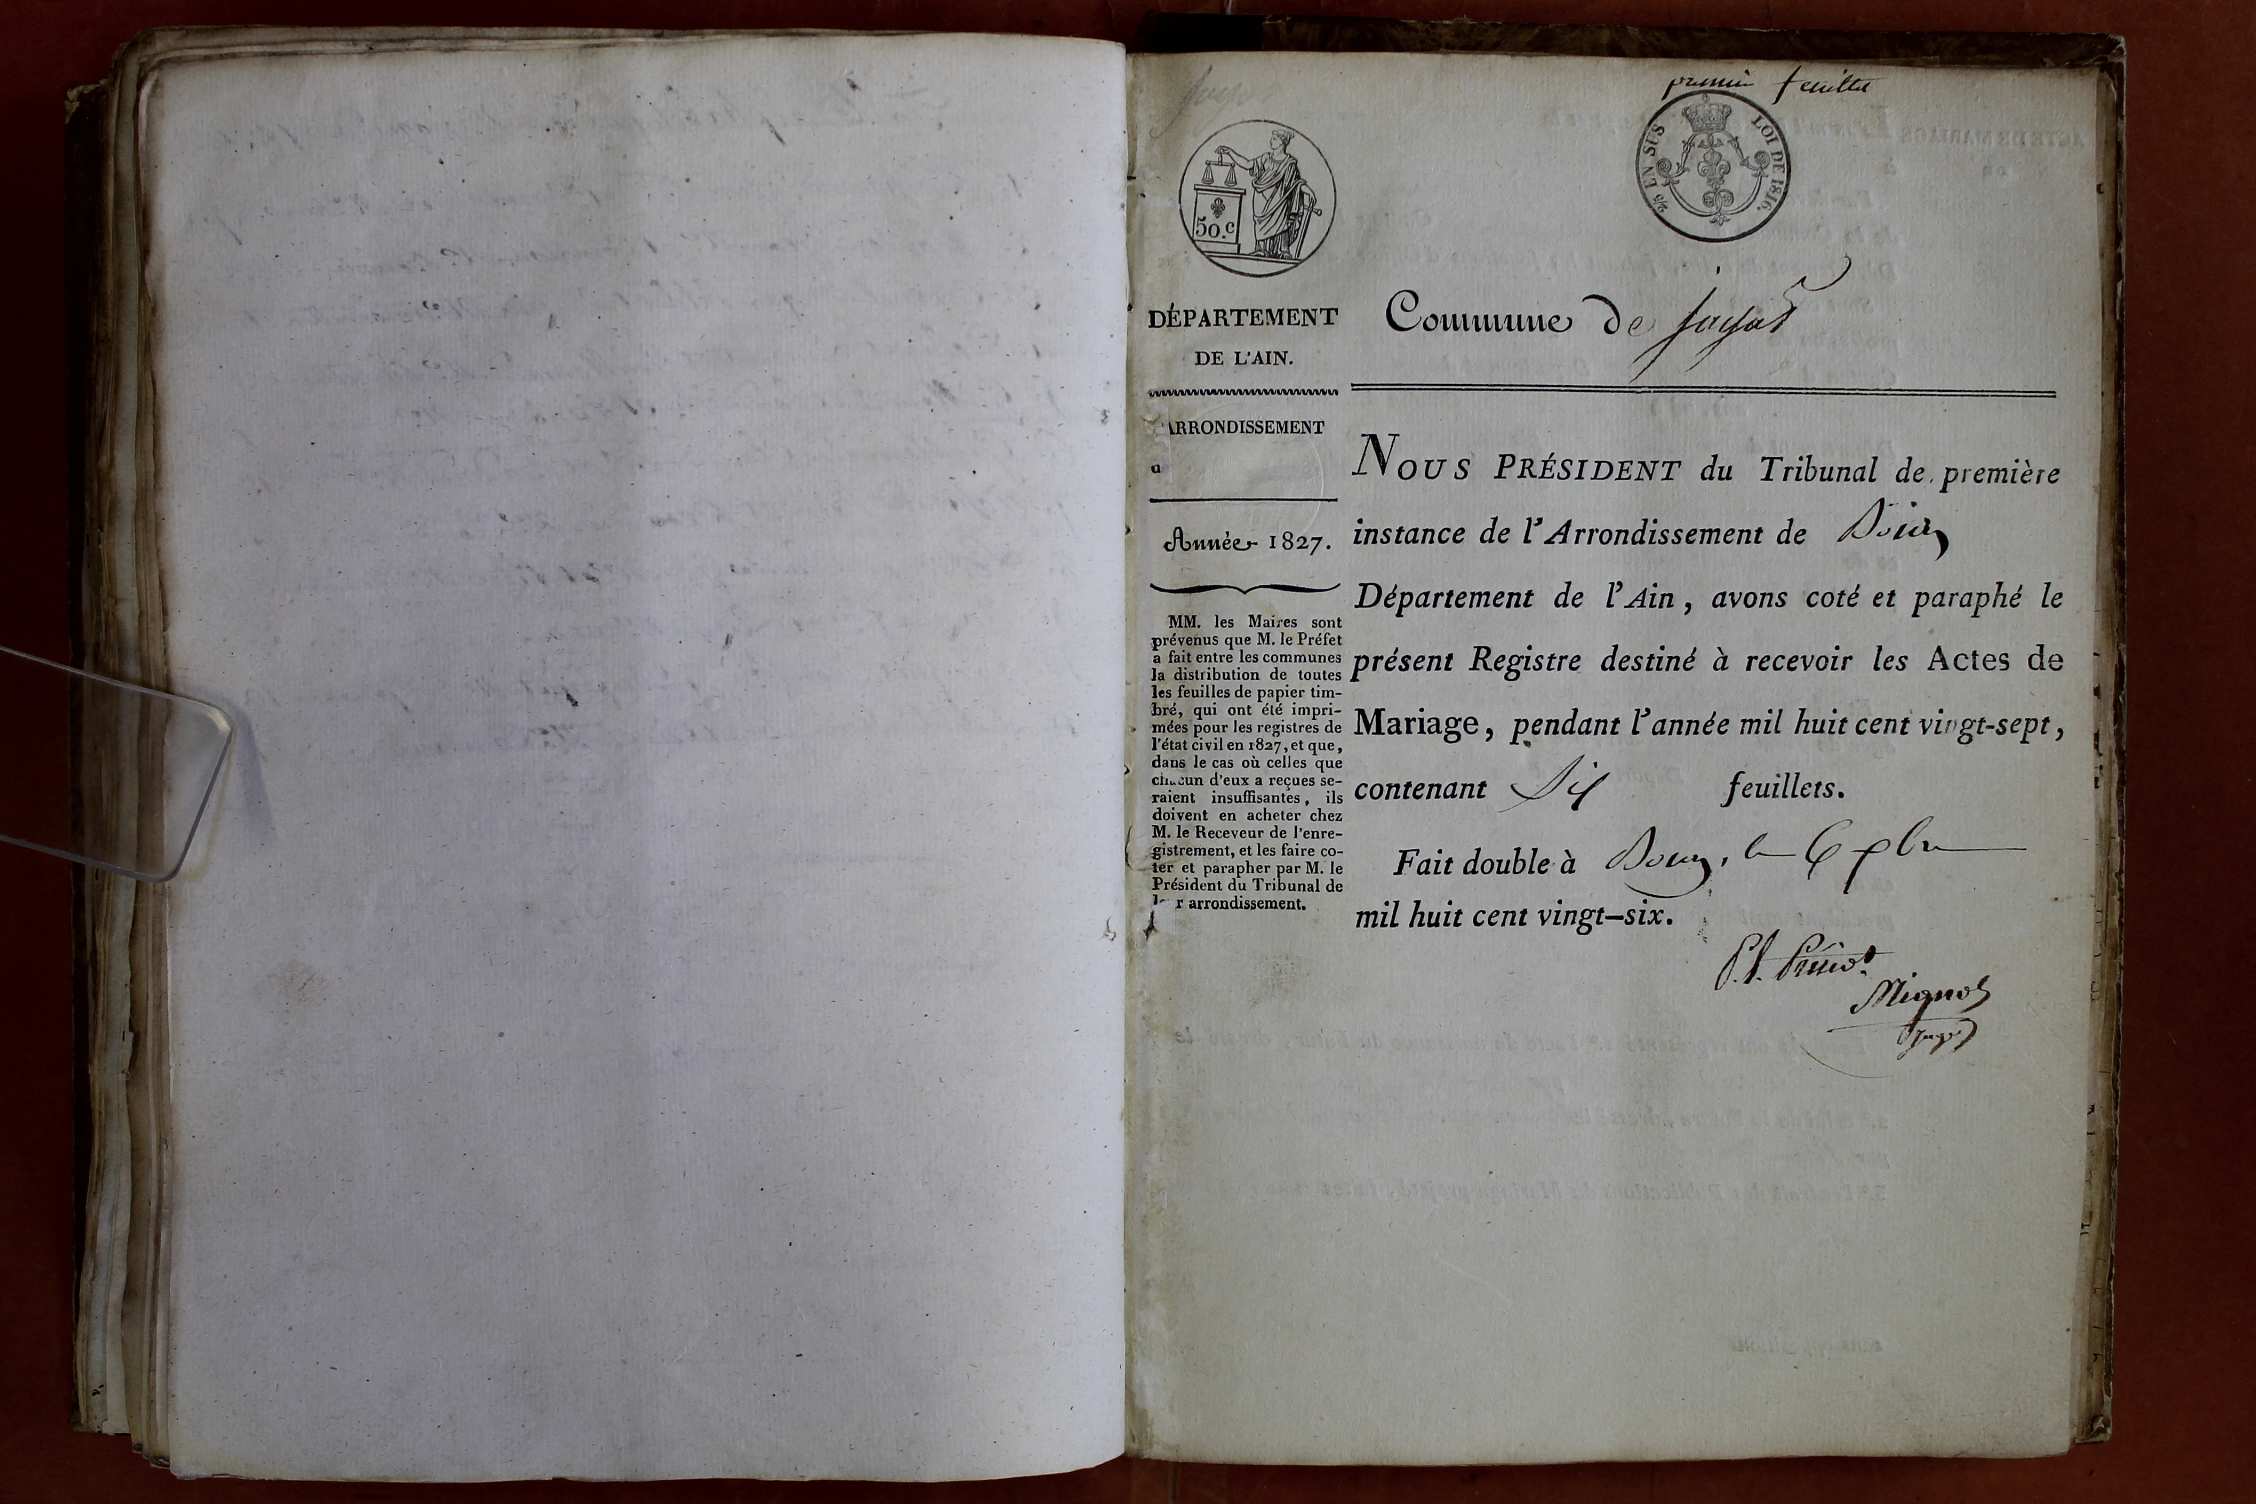 premier feuillet
EN SUS
LOI DE 1816.
50.c
DÉPARTEMENT
DE L'AIN.
Commune de Jayat
ARRONDISSEMENT
Année 1827.
MM. les Maires sont
prévenus que M. le Préfet
a fait entre les communes
la distribution de toutes
les feuilles de papier tim-
bré, qui ont été impri-
mées pour les registres de
l'état civil en 1827, et que,
dans le cas où celles que
chacun d'eux a reçues se-
raient insuffisantes, ils
doivent en acheter chez
M. le Receveur de l'enre-
gistrement, et les faire co-
ter et parapher par M. le
Président du Tribunal de
leur arrondissement.
NOUS PRÉSIDENT du Tribunal de première
instance de l'Arrondissement de Bourg
Département de l'Ain, avons coté et paraphé le
présent Registre destiné à recevoir les Actes de
Mariage, pendant l'année mil huit cent vingt-sept,
contenant Six feuillets.
Fait double à Bourg, le
mil huit cent vingt-six.
Mignot
Juge